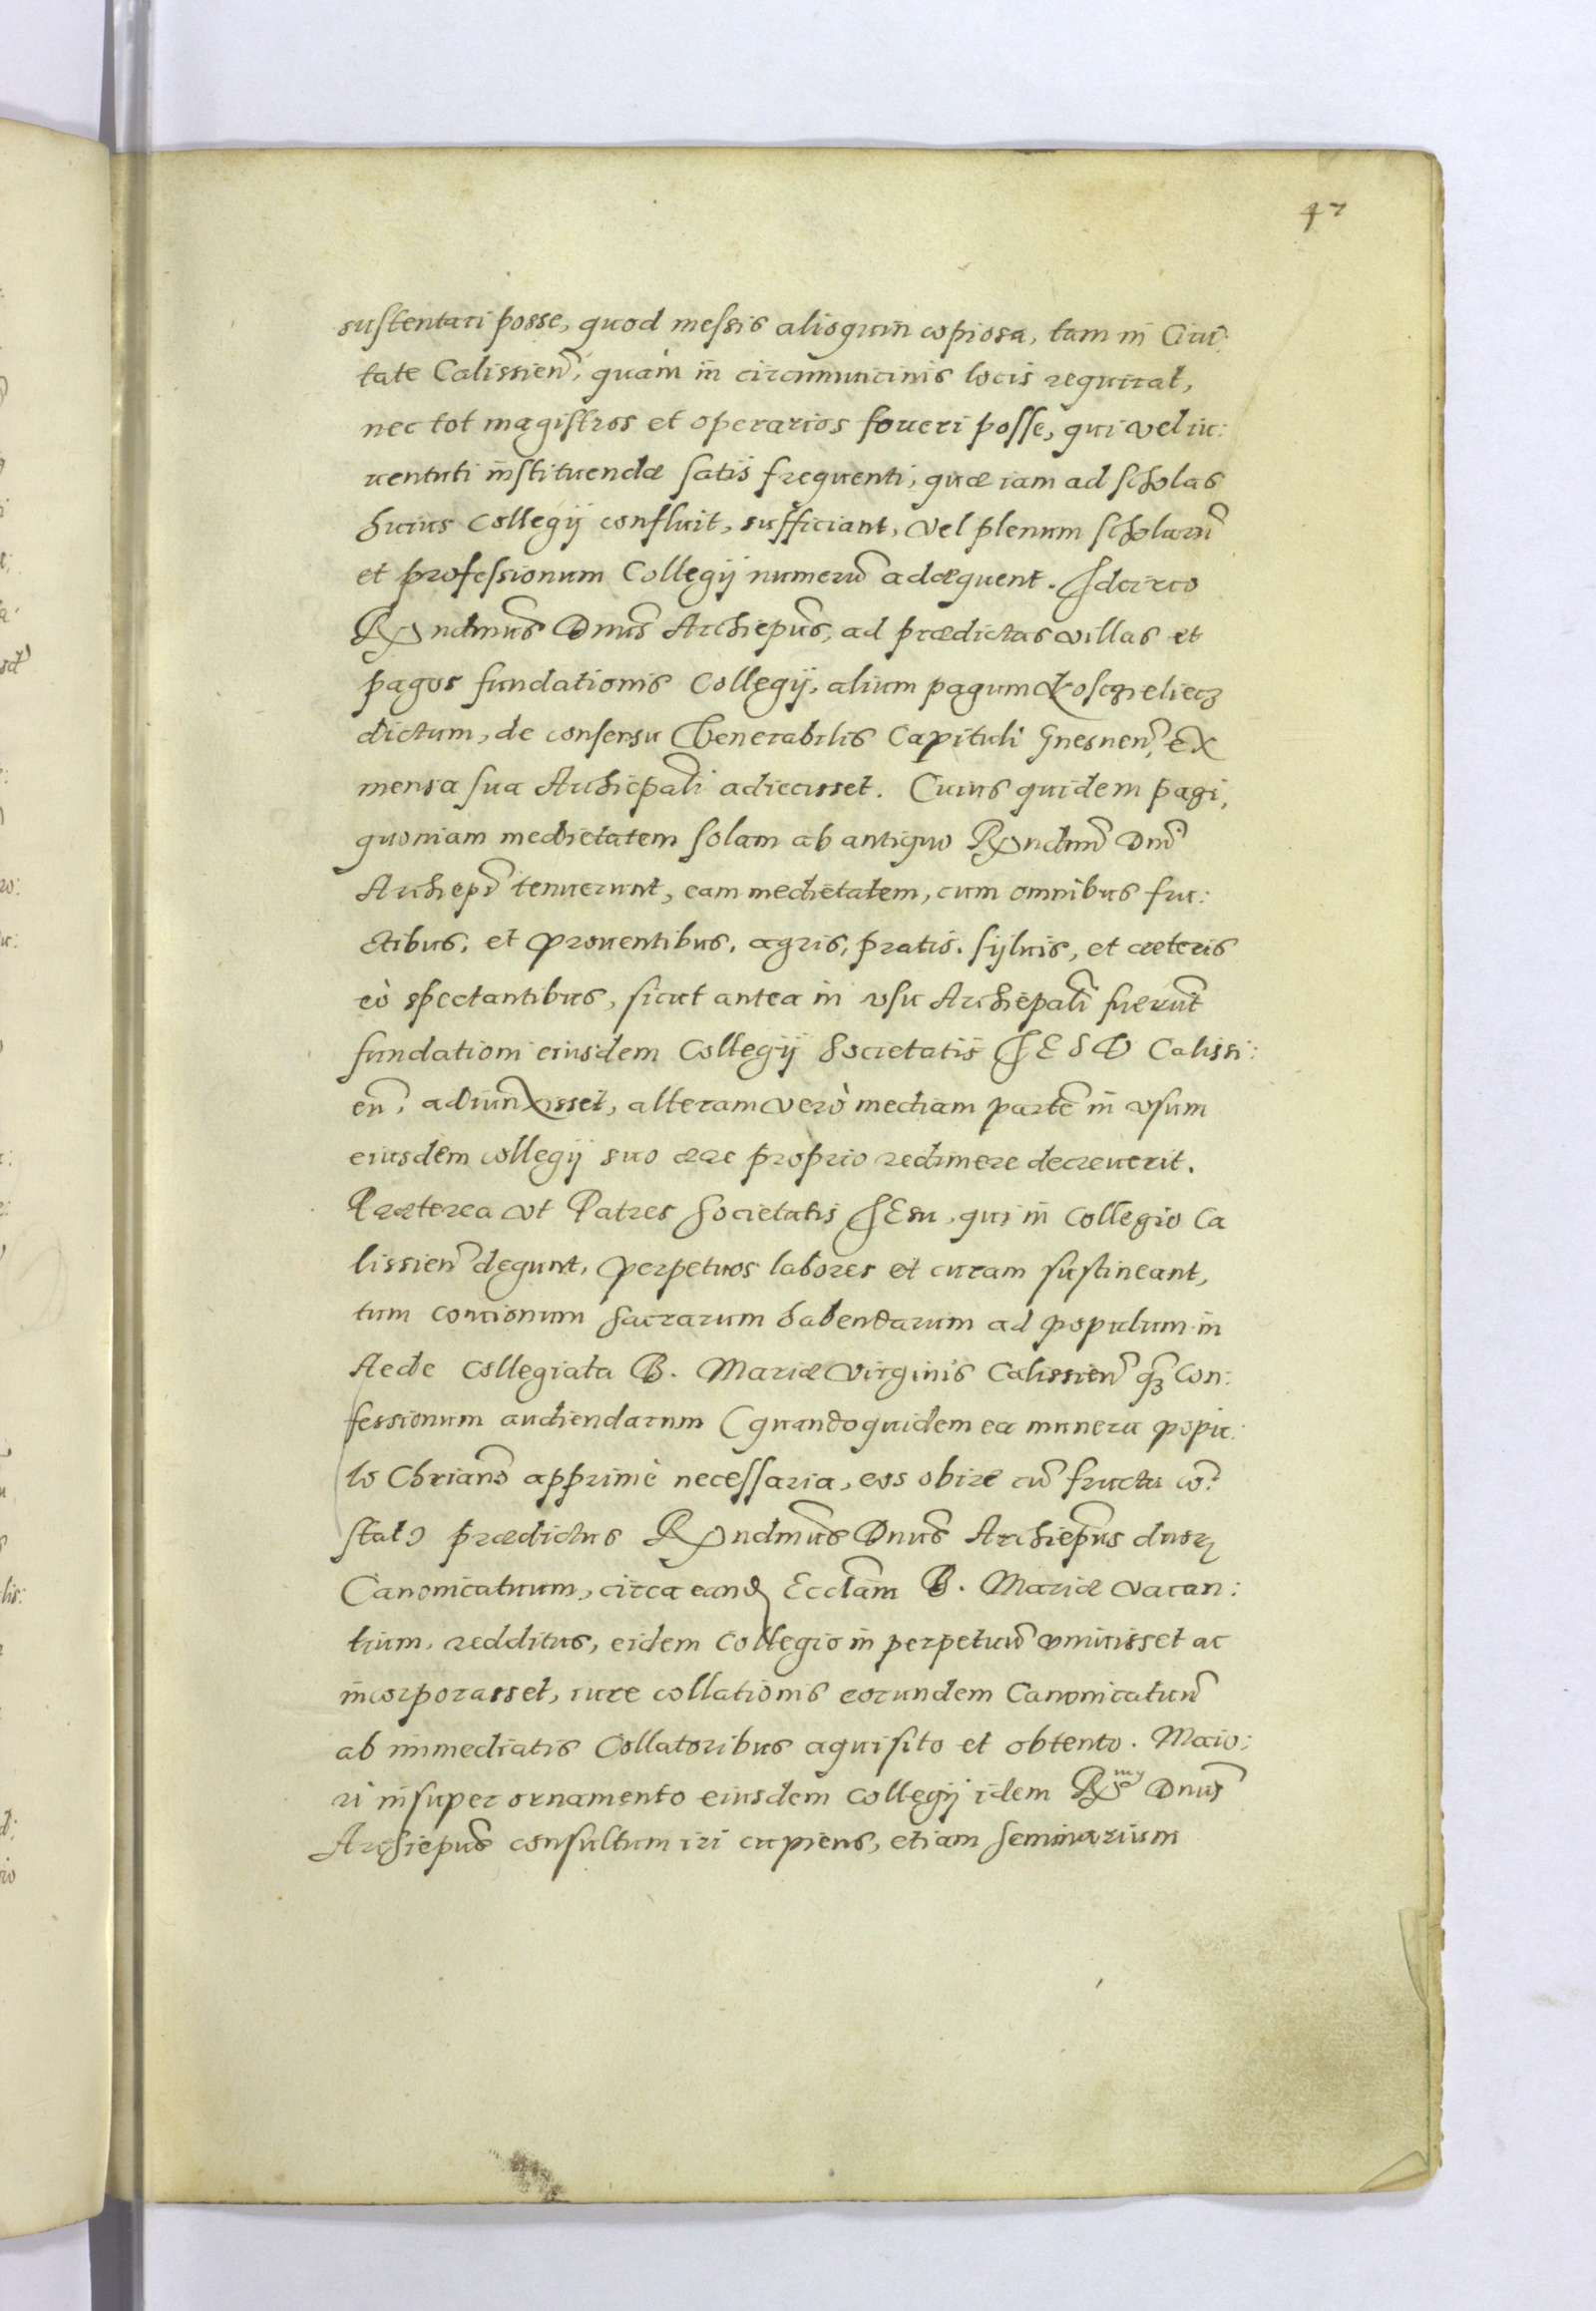 47
sustentari posse, quod messis alioquin copiosa, tam in Ciui:
tate Calissien̄, quàm in circumuicinis locis requirat,
nec tot magistros et operarios foueri posse, qui vel iu:
uentuti instituendæ satis frequenti, quæ iam ad scholas
huius Collegij confluit, sufficiant, vel plenum scholarū
et professionum Collegij numerū adæquent. Idcirco
Rṇdmūs Dnūs Archiepūs, ad prædictas villas et
pagos fundationis Collegij, alium pagum Koscgieliecz
dictum, de consensu Venerabilis Capituli Gnesnen̄, ex
mensa sua Archiepāli adiecisset. Cuius quidem pagi,
quoniam medietatem solam ab antiquo Rṇdmī Dnī
Archiepī tenuerunt, eam medietatem, cum omnibus fru:
ctibus, et prouentibus, agris, pratis, sijluis, et cæteris
eò spectantibus, sicut antea in vsu Archiepāli fuerūt
fundationi eiusdem Collegij Societatis IESV Calissi:
en̄, adiunxisset, alteram verò mediam partē in vsum
eiusdem collegij suo ære proprio redimere decreuerit.
Præterea vt Patres Societatis IEsu, qui in Collegio Ca
lissien̄ degunt, perpetuos labores et curam sustineant,
tum concionum sacrarum habendarum ad populum in
Aede Collegiata B. Mariæ Virginis Calissien̄ qz Con:
fessionum audiendarum (quandoquidem ea munera popu:
lo Chriano apprimè necessaria, eos obire cū fructu cō:
stat) prædictus Rṇdmūs Dnūs Archiepūs duorꝝ
Canonicatuum, circa eand Ecclām B. Mariæ vacan:
tium, redditus, eidem Collegio in perpetuū vnuisset ac
incorporasset, iure collationis eorundem Canonicatuū
ab immediatis Collatoribus aquisito et obtento. Maio:
ri insuper ornamento eiusdem Collegij idem Rmus Dnūs
Archiepūs consultum iri cupiens, etiam seminarium